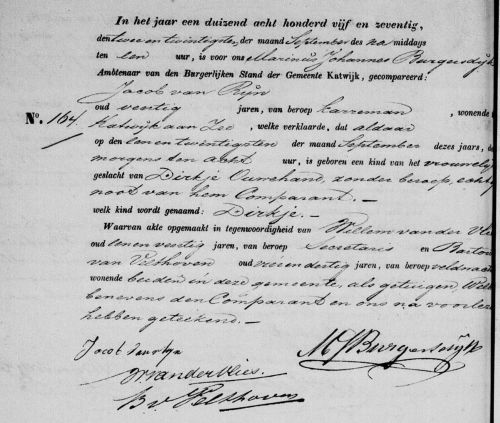 In het jaar een duizend acht honderd vijf en zeventig,
den twee en twintigsten der maand September des na middags
ten een uur, is voor ons Marinus Johannes Burgersdijk
Ambtenaar van den Burgerlijken Stand der Gemeente Katwijk, gecompareerd:
Jacob van Rijn
oud veertig jaren, van beroep karreman, wonende
No. 164. Katwijk aan Zee, welke verklaarde, dat aldaar
op den een en twintigsten der maand September dezes jaars, de
morgens ten acht uur, is geboren een kind van het vrouwely
geslacht van Dirkje Ouwehand, zonder beroep, echt
noot van hem Comparant. –
welk kind wordt genaamd: Dirkje. –
Waarvan akte opgemaakt in tegenwoordigheid van Willem van der Vlie
oud een en veertig jaren, van beroep Secretaris en Barto
van Velthoven oud vier en dertig jaren, van beroep veldwa
wonende beiden in deze gemeente, als getuigen, Welk
benevens den Comparant en ons na voorlez
hebben geteekend. –
Jacob van Ryn
W van der Vlies.
B v Velthoven
M J Burgersdijk